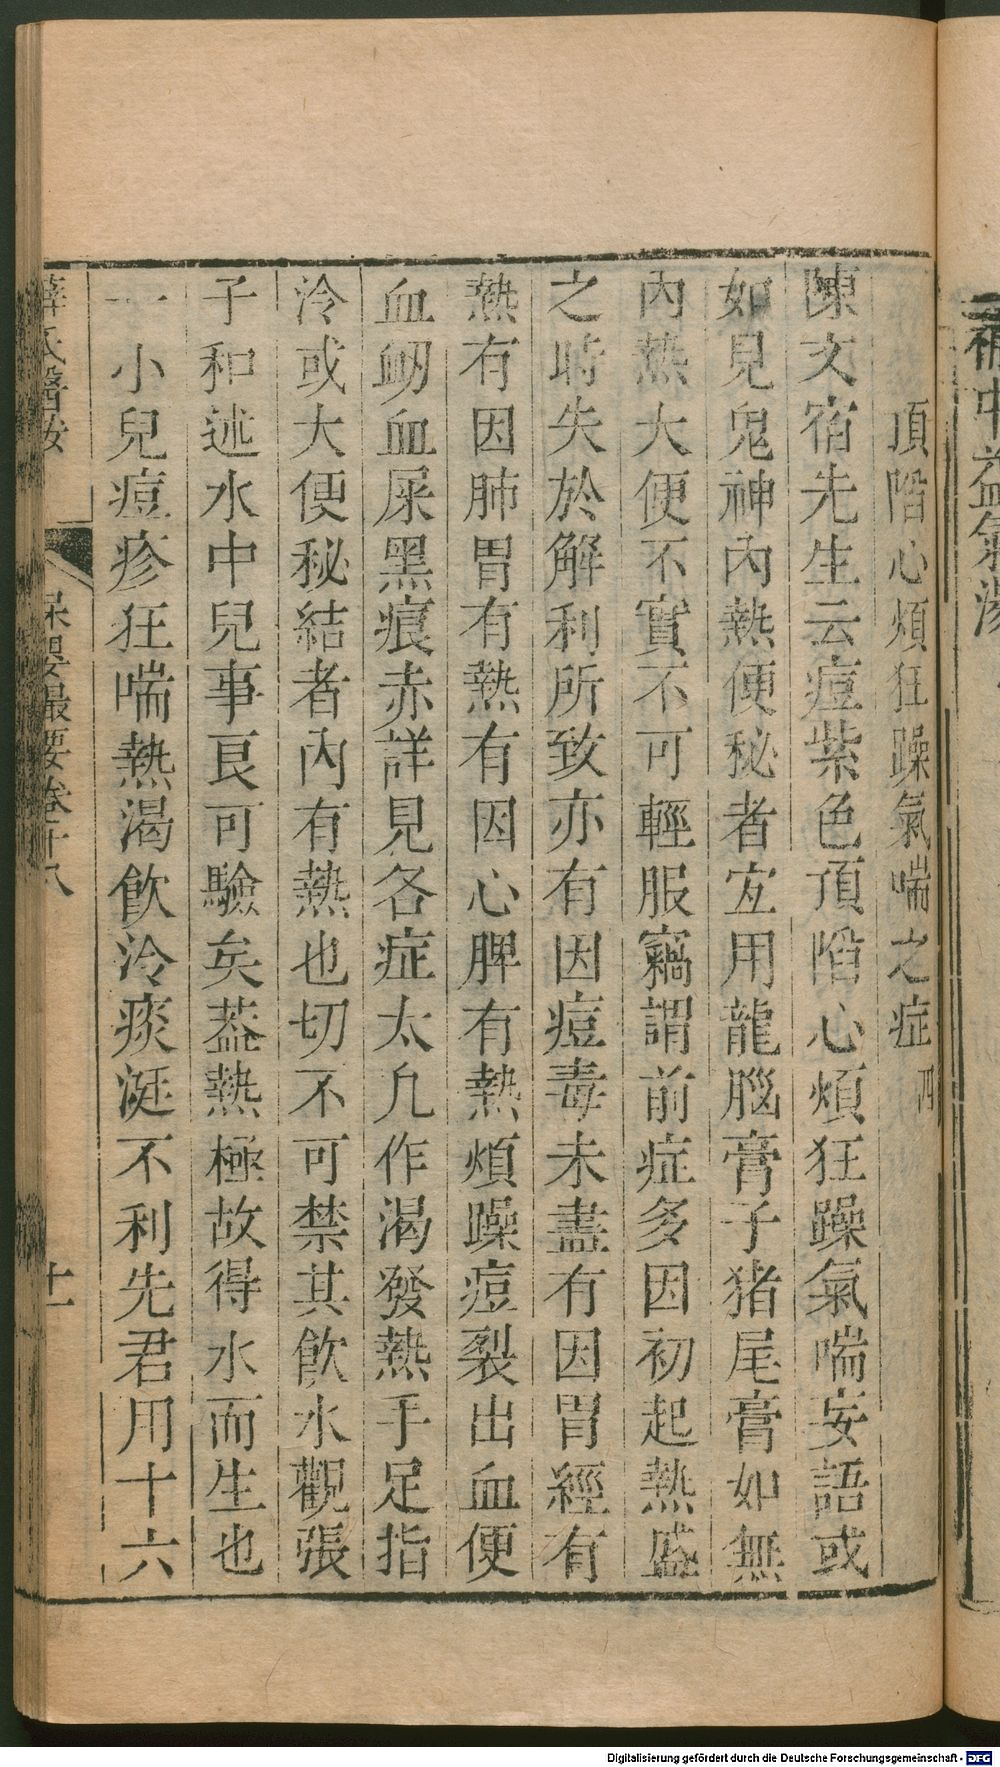 補中益氣湯
頂陷心煩狂躁氣喘之症 四
陳文宿先生云痘紫色頂陷心煩狂躁氣喘妄語或
如見鬼神內熱便秘者宜用龍腦膏子猪尾膏如無
內熱大便不實不可輕服竊謂前症多因初起熱盛
之時失於解利所致亦有因痘毒未盡有因胃經有
熱有因肺胃有熱有因心脾有熱煩躁痘裂出血便
血衂血屎黑痕赤詳見各症太凢作渴發熱手足指
冷或大便秘結者內有熱也切不可禁其飲水觀張
子和述水中兒事良可驗矣葢熱極故得水而生也
一小兒痘疹狂喘熱渴飲冷痰涎不利先君用十六
薛氏醫按 保嬰最要卷十八 十一
Digitalisierung gefördert durch die Deutsche Forschungsgemeinschaft - DFG